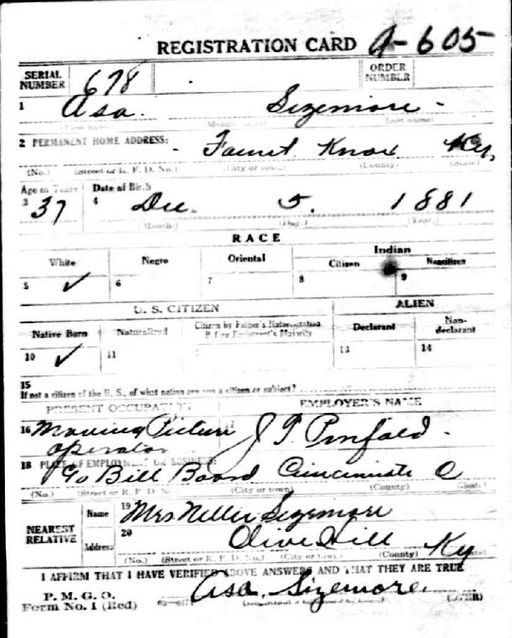 REGISTRATION CARD A-605
SERIAL NUMBER 678 ORDER NUMBER
1 Asa Sizemore
2 PERMANENT HOME ADDRESS: Knox Ky.
(No.) (Street or R. F. D. No.) (City or town) (County) (State)
Age in Years Date of Birth
3 37 4 Dec. 5. 1881
(Month) (Day) (Year)
RACE
White Negro Oriental Indian
Citizen Noncitizen
5 ✓ 6 7 8 9
U. S. CITIZEN ALIEN
Native Born Naturalized Citizen by Father's Naturalization Before Registrant's Majority Declarant Non-declarant
10 ✓ 11 13 14
15
If not a citizen of the U. S., of what nation are you a citizen or subject?
PRESENT OCCUPATION EMPLOYER'S NAME
16 Moving Picture operator J
18 PLACE OF EMPLOYMENT OR BUSINESS:
% Bill Board Cincinnati O
(No.) (Street or R. F. D. No.) (City or town) (County) (State)
NEAREST RELATIVE
Name 19 Mrs Nellie Sizemore
Address 20 Olive Hill Ky
(No.) (Street or R. F. D. No.) (City or town) (County) (State)
I AFFIRM THAT I HAVE VERIFIED ABOVE ANSWERS AND THAT THEY ARE TRUE
P. M. G. O.
Form No. 1 (Red) Asa Sizemore. (OVER)